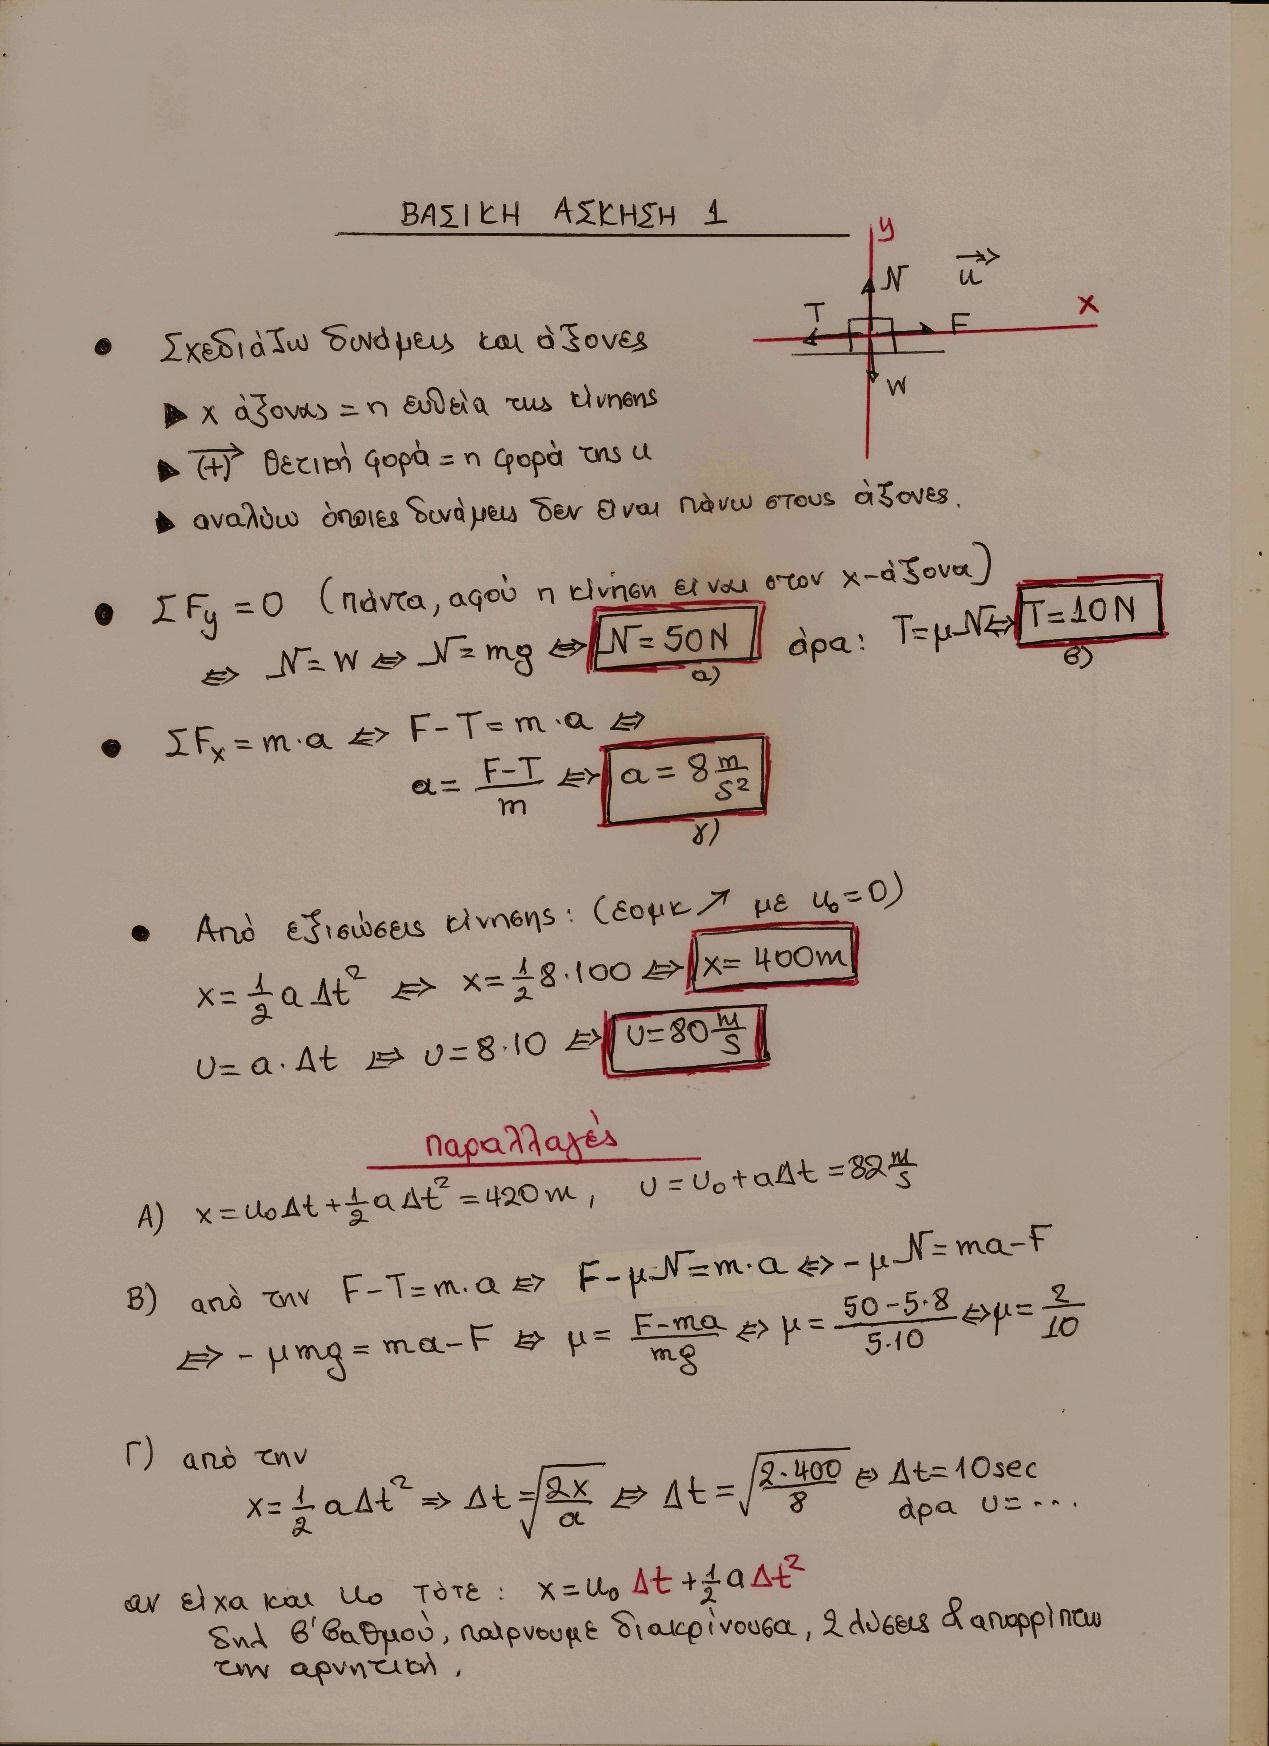 ΒΑΣΙΚΗ ΑΣΚΗΣΗ 1
y
N
u
T
F
x
W
• Σχεδιάζω δυνάμεις και άξονες
▶ x άξονας = η ευθεία της κίνησης
▶ (+) θετική φορά = η φορά της u
▶ αναλύω όποιες δυνάμεις δεν είναι πάνω στους άξονες.
• ΣFy = 0 (πάντα, αφού η κίνηση είναι στον x-άξονα)
⇔ N = W ⇔ N = mg ⇔ N = 50N άρα: T = μN ⇔ T = 10N
α) β)
• ΣFx = m·a ⇔ F-T = m·a ⇔
a = F-T/m ⇔ a = 8 m/s²
γ)
• Από εξισώσεις κίνησης: (εομκ ↗ με u₀=0)
x = 1/2 a Δt² ⇔ x = 1/2 8·100 ⇔ x = 400m
υ = a·Δt ⇔ υ = 8·10 ⇔ υ = 80 m/s
παραλλαγές
Α) x = u₀Δt + 1/2 a Δt² = 420m, υ = υ₀ + aΔt = 82 m/s
Β) από την F-T = m·a ⇔ F-μN = m·a ⇔ -μN = ma-F
⇔ -μmg = ma-F ⇔ μ = F-ma/mg ⇔ μ = 50-5·8/5·10 ⇔ μ = 2/10
Γ) από την
x = 1/2 a Δt² ⇒ Δt = √2x/a ⇔ Δt = √2·400/8 ⇔ Δt = 10sec
άρα υ = ...
αν είχα και u₀ τότε: x = u₀ Δt + 1/2 a Δt²
δηλ β' βαθμού, παίρνουμε διακρίνουσα, 2 λύσεις & απορρίπτω
την αρνητική.